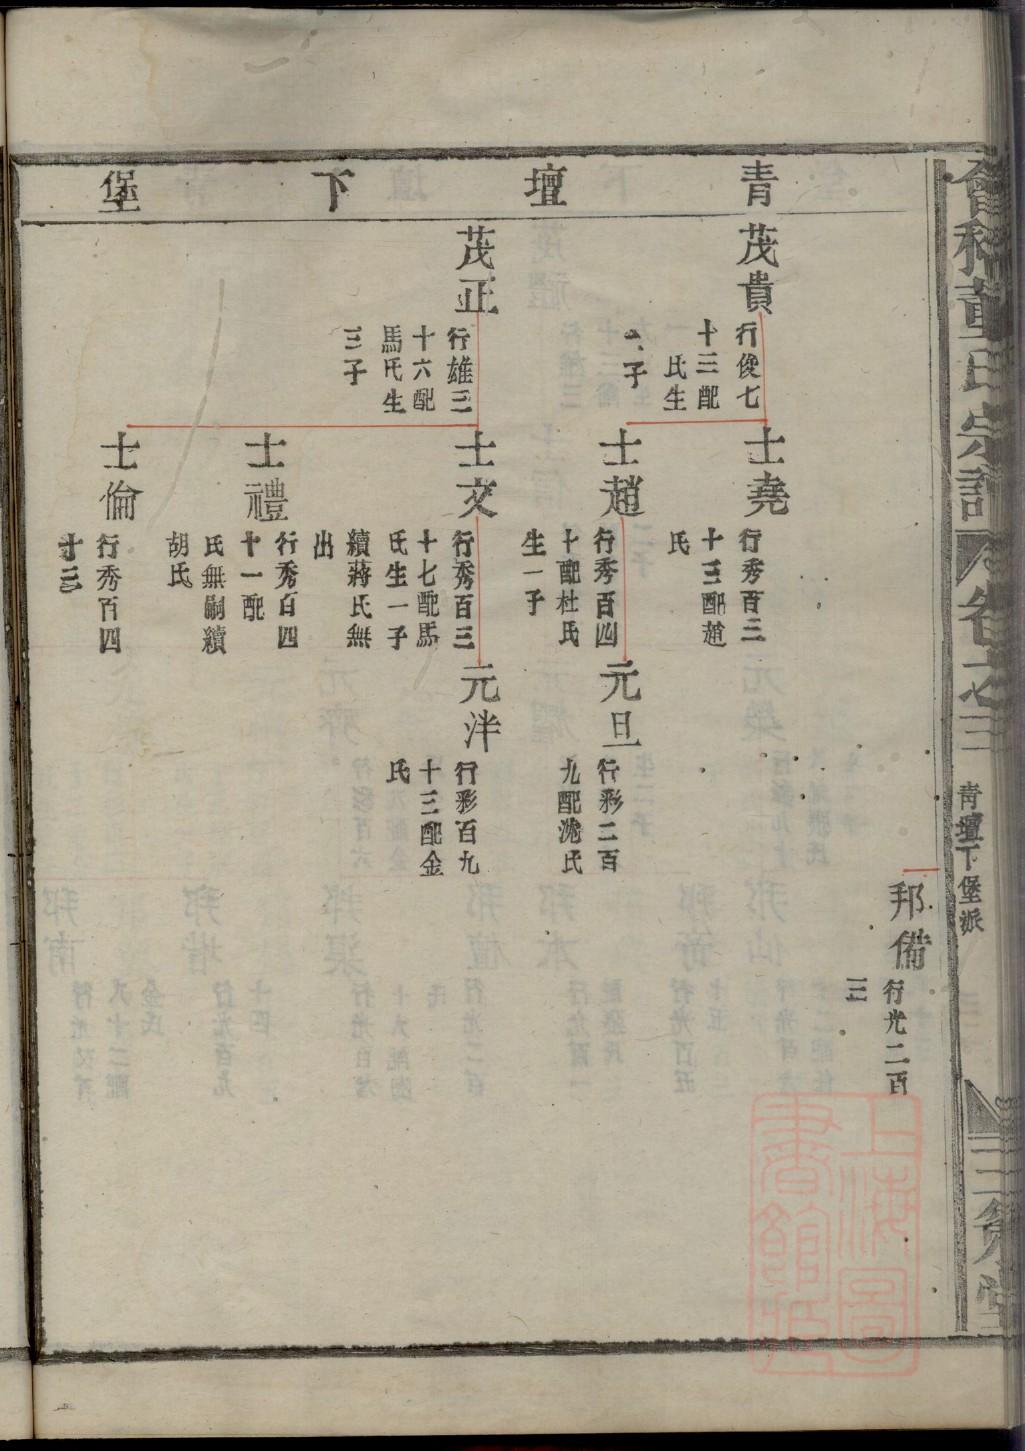 會稽董氏宗譜 卷之三 青壇下堡派 三策堂
青壇下堡
邦備
行光二百
三
茂貴
行俊七
十三配
氏生
二子
士堯
行秀百三
十三配趙
氏
士趙
行秀百四
十配杜氏
生一子
元旦
行彩二百
九配沈氏
茂正
行雄三
十六配
馬氏生
三子
士文
行秀百三
十七配馬
氏生一子
續蔣氏無
出
元泮
行彩百九
十三配金
氏
士禮
行秀百四
十一配
氏無嗣續
胡氏
士倫
行秀百四
十三
上海圖書館藏